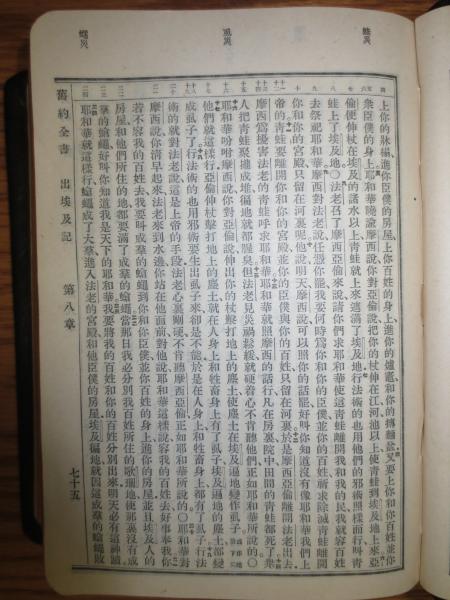 蛙災
虱災
蠅災
上你的牀榻進你臣僕的房屋上你百姓的身上進你的爐竈和你的摶麵盆又要上你和你百姓並你
衆臣僕的身上耶和華曉諭摩西說你對亞倫說把你的杖伸在江河池以上使青蛙到埃及地上來亞
倫便伸杖在埃及的諸水以上青蛙就上來遮滿了埃及地行法術的也用他們的邪術照樣而行叫青
蛙上了埃及地〇法老召了摩西亞倫來說請你們求耶和華使這青蛙離開我和我的民我就容百姓
去祭祀耶和華摩西對法老說任憑你罷我要何時爲你和你的臣僕並你的百姓祈求除滅青蛙離開
你和你的宮殿只留在河裏呢他說明天摩西說可以照你的話罷好叫你知道沒有像耶和華我們上
帝的青蛙要離開你和你的宮殿並你的臣僕與你的百姓只留在河裏於是摩西亞倫離開法老出去
摩西爲擾害法老的青蛙呼求耶和華耶和華就照摩西的話行凡在房裏院中田間的青蛙都死了衆
人把青蛙聚攏成堆徧地就都腥臭但法老見災禍鬆緩就硬着心不肯聽他們正如耶和華所說的〇
耶和華吩咐摩西說你對亞倫說伸出你的杖擊打地上的塵土使塵土在埃及徧地變作虱子
他們就這樣行亞倫伸杖擊打地上的塵土就在人身上和牲畜身上有了虱子埃及遍地的塵土都變
成虱子了行法術的也用邪術要生出虱子來卻是不能於是在人身上和牲畜身上都有了虱子行法
術的就對法老說這是上帝的手段法老心裏剛硬不肯聽摩西亞倫正如耶和華所說的〇耶和華對
摩西說你清早起來法老來到水邊你站在他面前對他說耶和華這樣說容我的百姓去好事奉我你
若不容我的百姓去我要叫成羣的蒼蠅到你和你臣僕並你百姓的身上進你的房屋並且埃及人的
房屋和他們所住的地都要滿了成羣的蒼蠅當那日我必分別我百姓所住的歌珊地使那裏沒有成
羣的蒼蠅好叫你知道我是天下的耶和華我要將我的百姓和你的百姓分別出來明天必有這神蹟
耶和華就這樣行蒼蠅成了大羣進入法老的宮殿和他臣僕的房屋埃及徧地就因這成羣的蒼蠅敗
舊約全書 出埃及記 第八章 七十五